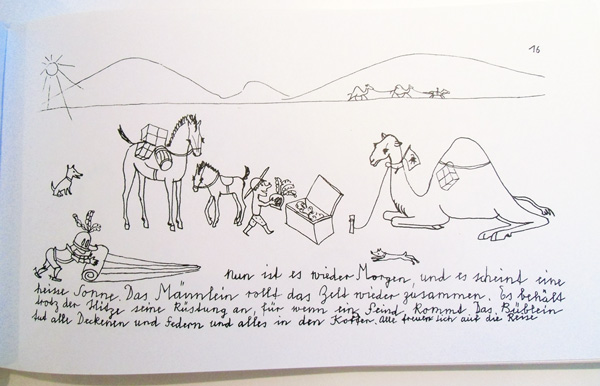 16
Nun ist es wieder Morgen, und es scheint eine
heisse Sonne. Das Männlein rollt das Zelt wieder zusammen. Es behält
trotz der Hitze seine Rüstung an, für wenn ein Feind kommt. Das Büblein
tut alle Deckenen und Federn und alles in den Koffer. Alle freuen sich auf die Reise